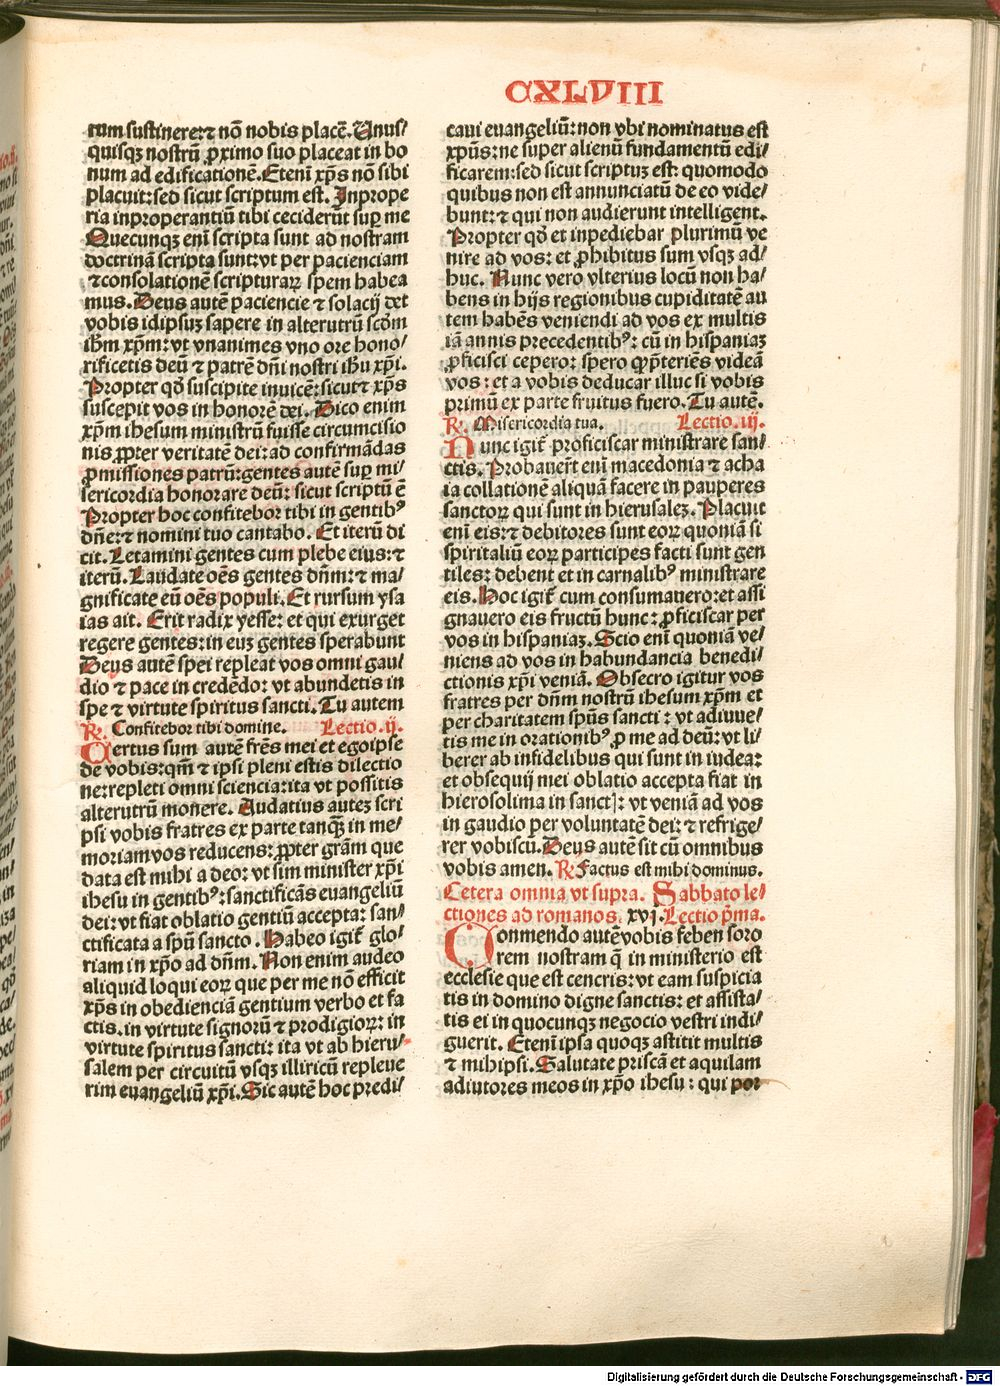 CXLVIII
rum sustinere:⁊ nō nobis placē. Unus/
quisqꝫ nostrū ꝓximo suo placeat in bo
num ad edificationē. Etenī xp̄s nō sibi
placuit: sed sicut scriptum est. Inprope
ria inproperantiū tibi ceciderūt suꝑ me
Quecunqꝫ enī scripta sunt ad nostram
doctrinā scripta sunt: vt per pacienciam
⁊ consolationē scripturaꝝ spem habea
mus. Deus autē paciencie ⁊ solacij det
vobis idipsuꝫ sapere in alterutrū scd̄m
ihm̄ xpm̄: vt vnanimes vno ore hono/
rificetis deū ⁊ patrē dn̄i nostri ihū xp̄i.
Propter qd̄ suscipite inuicē: sicut ⁊ xp̄s
suscepit vos in honorē dei. Dico enim
xp̄m ihesum ministrū fuisse circumcisio
nis ꝓpter veritatē dei: ad confirmādas
ꝓmissiones patrū: gentes autē suꝑ mi/
sericordia honorare deū: sicut scriptū ē
Propter hoc confitebor tibi in gentibꝰ
dn̄e: ⁊ nomini tuo cantabo. Et iterū di
cit. Letamini gentes cum plebe eius: ⁊
iterū. Laudate oēs gentes dn̄m: ⁊ ma/
gnificate eū oēs populi. Et rursum ysa
ias ait. Erit radix yesse: et qui exurget
regere gentes: in euꝫ gentes sperabunt
Deus autē spei repleat vos omni gau/
dio ⁊ pace in credēdo: vt abundetis in
spe ⁊ virtute spiritus sancti. Tu autem
℞. Confitebor tibi domine. Lectio .ij.
Certus sum autē frēs mei et ego ipse
de vobis: qm̄ ⁊ ipsi pleni estis dilectio
ne: repleti omni sciencia: ita vt possitis
alterutrū monere. Audatius auteꝫ scri
psi vobis fratres ex parte tanqꝫ in me/
moriam vos reducens: ꝓpter grām que
data est mihi a deo: vt sim minister xp̄i
ihesu in gentibꝰ: sanctificās euangeliū
dei: vt fiat oblatio gentiū accepta: san/
ctificata a spū sancto. Habeo igit̄ glo/
riam in xp̄o ad dn̄m. Non enim audeo
aliquid loqui eoꝝ que per me nō efficit
xp̄s in obedienciā gentium verbo et fa
ctis. in virtute signorū ⁊ prodigioꝝ: in
virtute spiritus sancti: ita vt ab hieru/
salem per circuitū vsqꝫ illiricū repleue
rim euangeliū xp̄i. Sic autē hoc predi/
caui euangeliū: non ybi nominatus est
xpūs: ne super alienū fundamentū edi/
ficarem: sed sicut scriptuꝫ est: quomodo
quibus non est annunciatū de eo vide/
bunt: ⁊ qui non audierunt intelligent.
Propter qd̄ et inpediebar plurimū ve
nire ad vos: et ꝓhibitus sum vsqꝫ ad/
huc. Nunc vero vlterius locū non ha/
bens in hijs regionibus cupiditatē au
tem habēs veniendi ad vos ex multis
iā annis precedentibꝰ: cū in hispaniaꝫ
ꝓficisci cepero: spero qp̄teriēs videā
vos: et a vobis deducar illuc si vobis
primū ex parte fruitus fuero. Tu autē.
℞. Misericordia tua. Lectio .iij.
Nunc igit̄ proficiscar ministrare san/
ctis. Probauerūt enī macedonia ⁊ acha
ia collationē aliquā facere in pauperes
sanctoꝝ qui sunt in hierusaleꝫ. Placuit
enī eis: ⁊ debitores sunt eoꝝ quoniā si
spiritaliū eoꝝ participes facti sunt gen
tiles: debent et in carnalibꝰ ministrare
eis. Hoc igit̄ cum consumauero: et assi
gnauero eis fructū hunc: ꝓficiscar per
vos in hispaniaꝫ. Scio enī quoniā ve/
niens ad vos in habundancia benedi/
ctionis xp̄i veniā. Obsecro igitur vos
fratres per dn̄m nostrū ihesum xp̄m et
per charitatem spūs sancti: vt adiuue/
tis me in orationibꝰ ꝓ me ad deū: vt li/
berer ab infidelibus qui sunt in iudea:
et obsequij mei oblatio accepta fiat in
hierosolima in sanctꝭ: vt veniā ad vos
in gaudio per voluntatē dei: ⁊ refrige/
rer vobiscū. Deus autē sit cū omnibus
vobis amen. ℞. Factus est mihi dominus.
Cetera omnia vt supra. Sabbato le/
ctiones ad romanos. xvj. Lectio p̄ma.
Conmendo autē vobis feben soro
rem nostram q̄ in ministerio est
ecclesie que est cencris: vt eam suspicia
tis in domino digne sanctis: et assista/
tis ei in quocunqꝫ negocio vestri indi/
guerit. Etenī ipsa quoqꝫ astitit multis
⁊ mihipsi. Salutate priscā et aquilam
adiutores meos in xp̄o ihesu: qui por
Digitalisierung gefördert durch die Deutsche Forschungsgemeinschaft - DFG